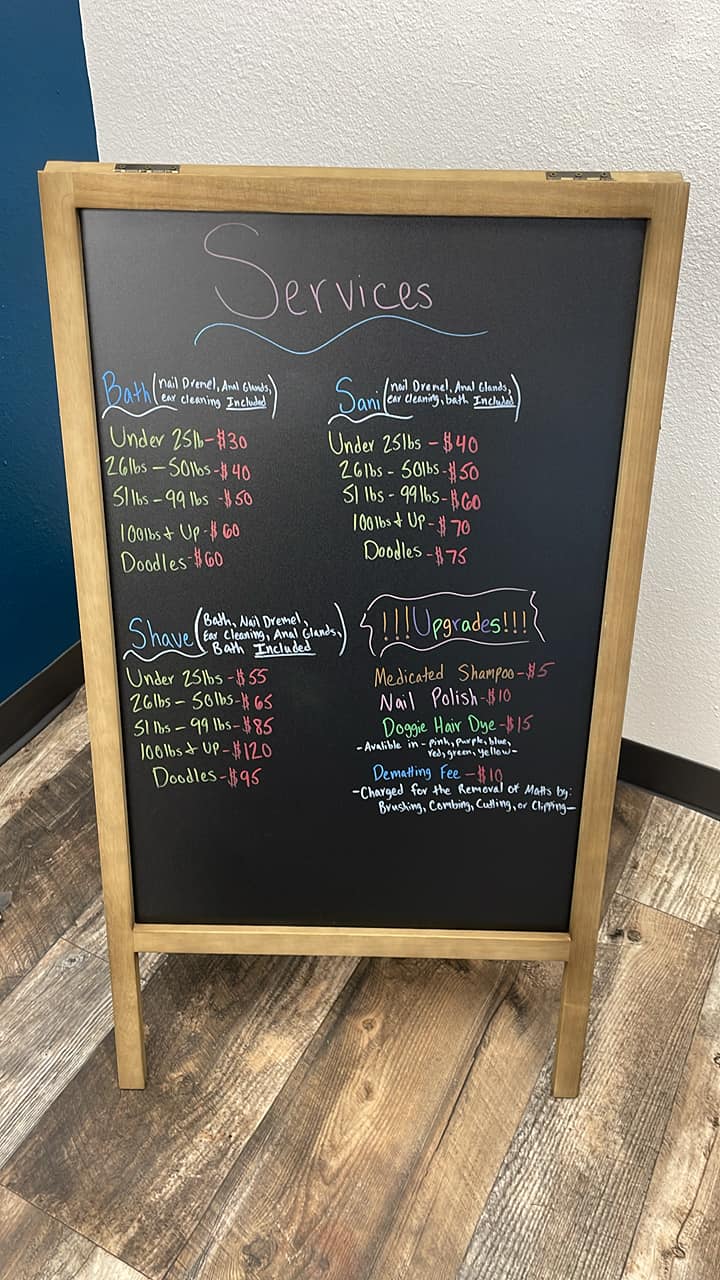 Services
Bath (nail Dremel, Anal Glands,
ear cleaning Included)
Under 25lb-$30
26lbs - 50lbs-$40
51lbs - 99lbs -$50
100lbs & Up-$60
Doodles-$60
Sani (nail Dremel, Anal Glands,
ear cleaning, bath Included)
Under 25lbs - $40
26lbs - 50lbs-$50
51lbs - 99lbs-$60
100lbs & Up-$70
Doodles-$75
Shave (Bath, Nail Dremel,
Ear Cleaning, Anal Glands,
Bath Included)
Under 25lbs-$55
26lbs - 50lbs-$65
51lbs - 99lbs-$85
100lbs & Up-$120
Doodles-$95
!!!Upgrades!!!
Medicated Shampoo-$5
Nail Polish-$10
Doggie Hair Dye-$15
-Avalible in - pink, purple, blue,
red, green, yellow-
Dematting Fee -$10
-Charged for the Removal of Matts by:
Brushing, Combing, Cutting, or Clipping-